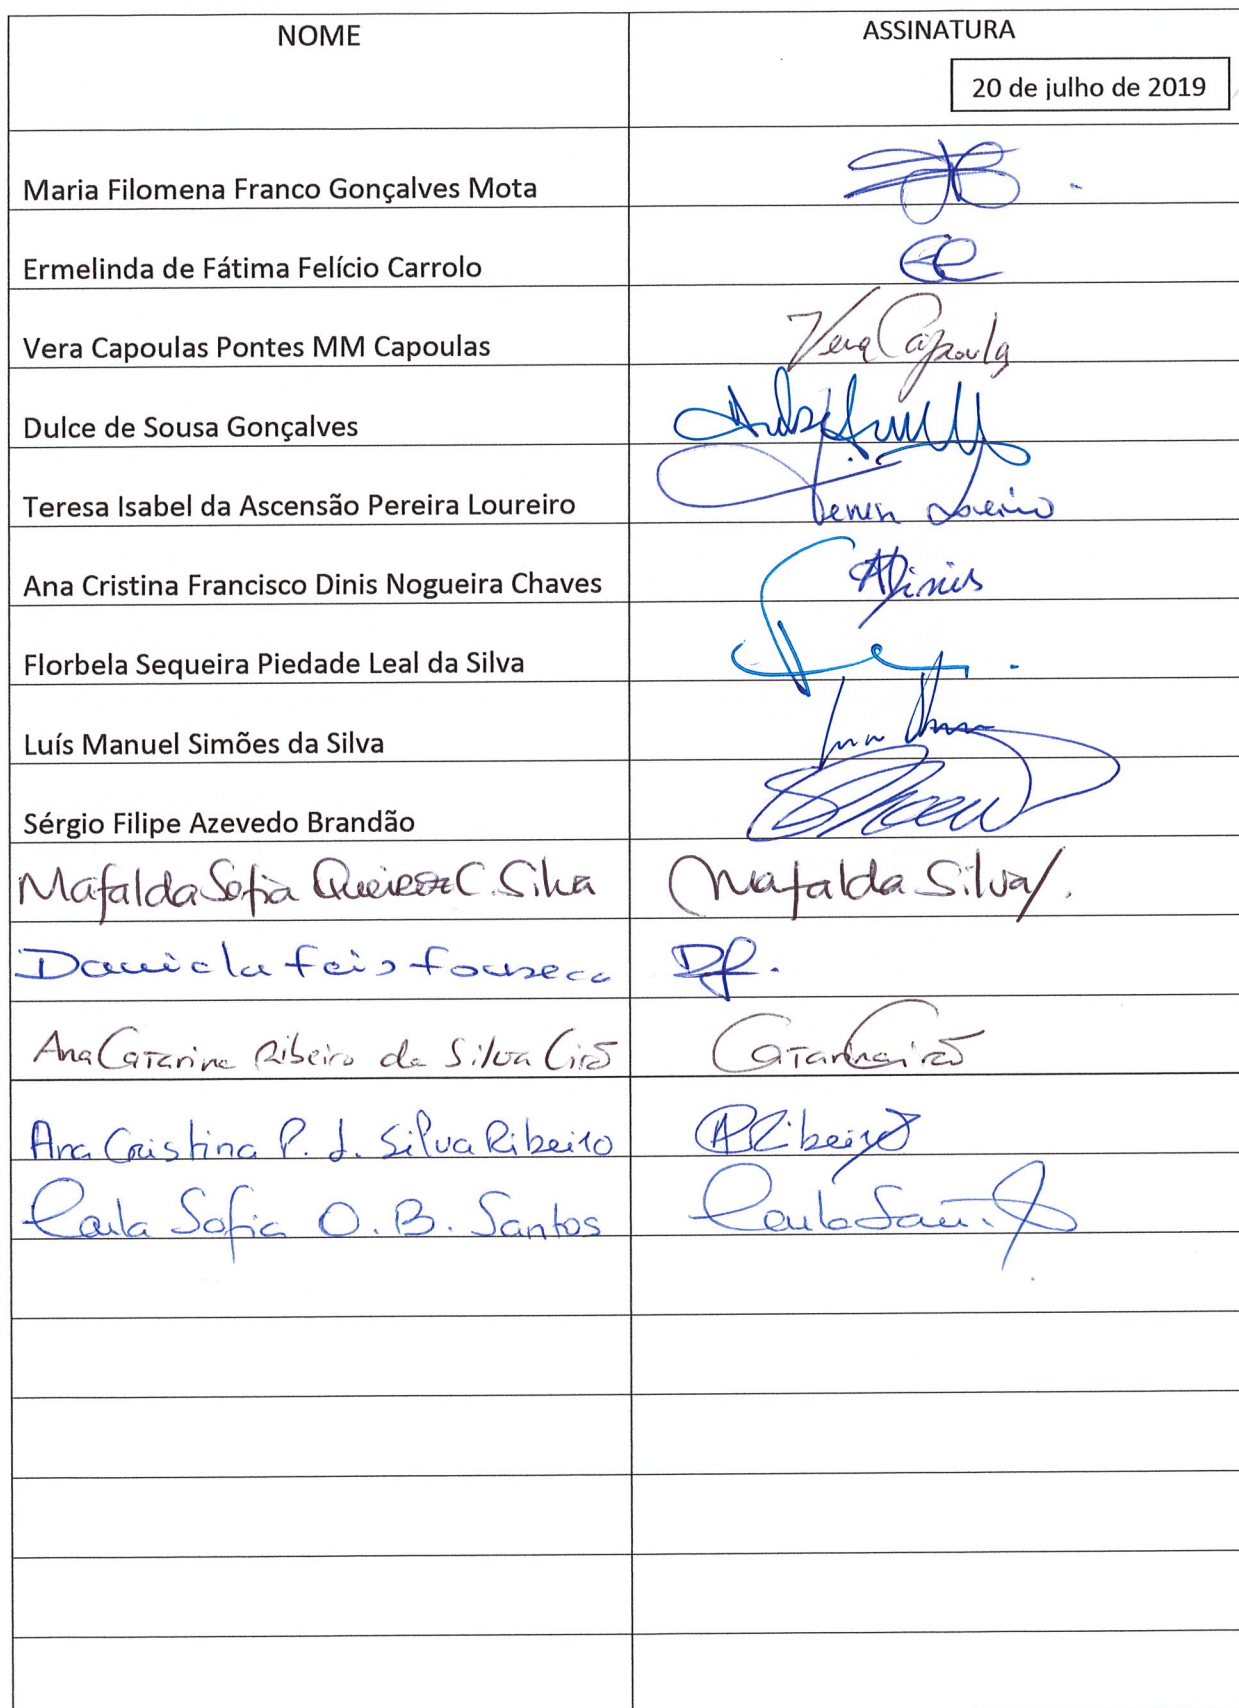 NOME
ASSINATURA
20 de julho de 2019
Maria Filomena Franco Gonçalves Mota
Ermelinda de Fátima Felício Carrolo
EC
Vera Capoulas Pontes MM Capoulas
Vera Capoulas
Dulce de Sousa Gonçalves
Teresa Isabel da Ascensão Pereira Loureiro
Teresa Loureiro
Ana Cristina Francisco Dinis Nogueira Chaves
ADinis
Florbela Sequeira Piedade Leal da Silva
Luís Manuel Simões da Silva
Sérgio Filipe Azevedo Brandão
Mafalda Sofia Queiroz C. Silva
Mafalda Silva
Daniela Feis Fonseca
DF.
Ana Catarina Ribeiro da Silva
Catarina
Ana Cristina P. J. Silva Ribeiro
ARibeiro
Carla Sofia O. B. Santos
Carla